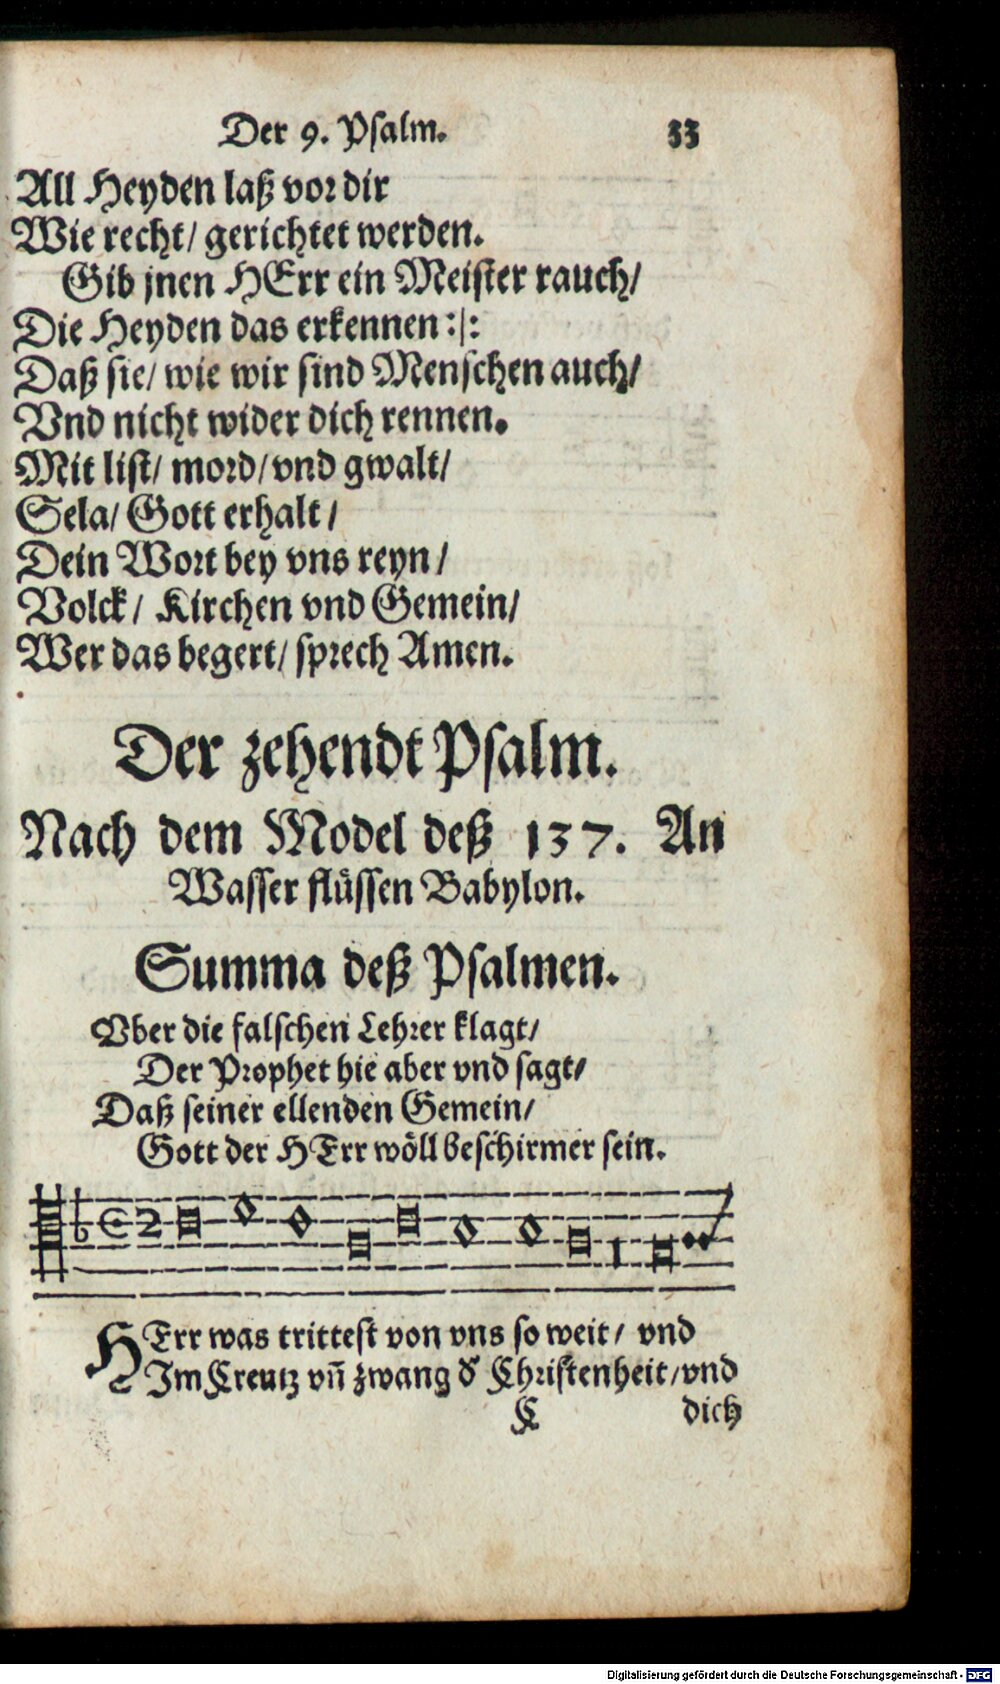 Der 9. Psalm. 33
All Heyden laß vor dir
Wie recht/ gerichtet werden.
Gib jnen HErr ein Meister rauch/
Die Heyden das erkennen :|:
Daß sie/ wie wir sind Menschen auch/
Vnd nicht wider dich rennen.
Mit list/ mord/ vnd gwalt/
Sela/ Gott erhalt /
Dein Wort bey vns reyn /
Volck/ Kirchen vnd Gemein/
Wer das begert/ sprech Amen.
Der zehendt Psalm.
Nach dem Model deß 137. An
Wasser flüssen Babylon.
Summa deß Psalmen.
Vber die falschen Lehrer klagt/
Der Prophet hie aber vnd sagt/
Daß seiner ellenden Gemein/
Gott der HErr wöll beschirmer sein.
HErr was trittest von vns so weit/ vnd
Im Creutz vñ zwang d' Christenheit/ vnd
E dich
Digitalisierung gefördert durch die Deutsche Forschungsgemeinschaft - DFG